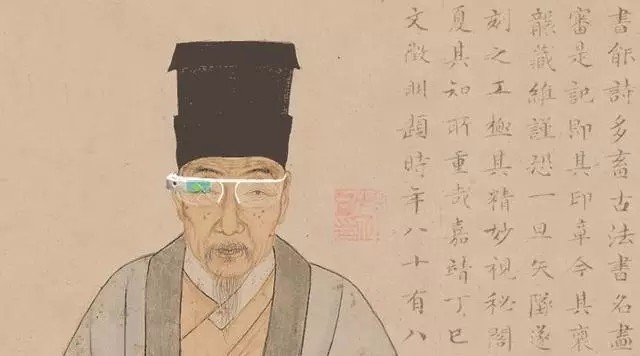 書能詩多畜古法書名畫
審是記即其印章今其裒
襲藏維謹恐一旦失墜遂
刻之工極其精妙視秘閣
夏其知所重哉嘉靖丁巳
文徵明題時年八十有八